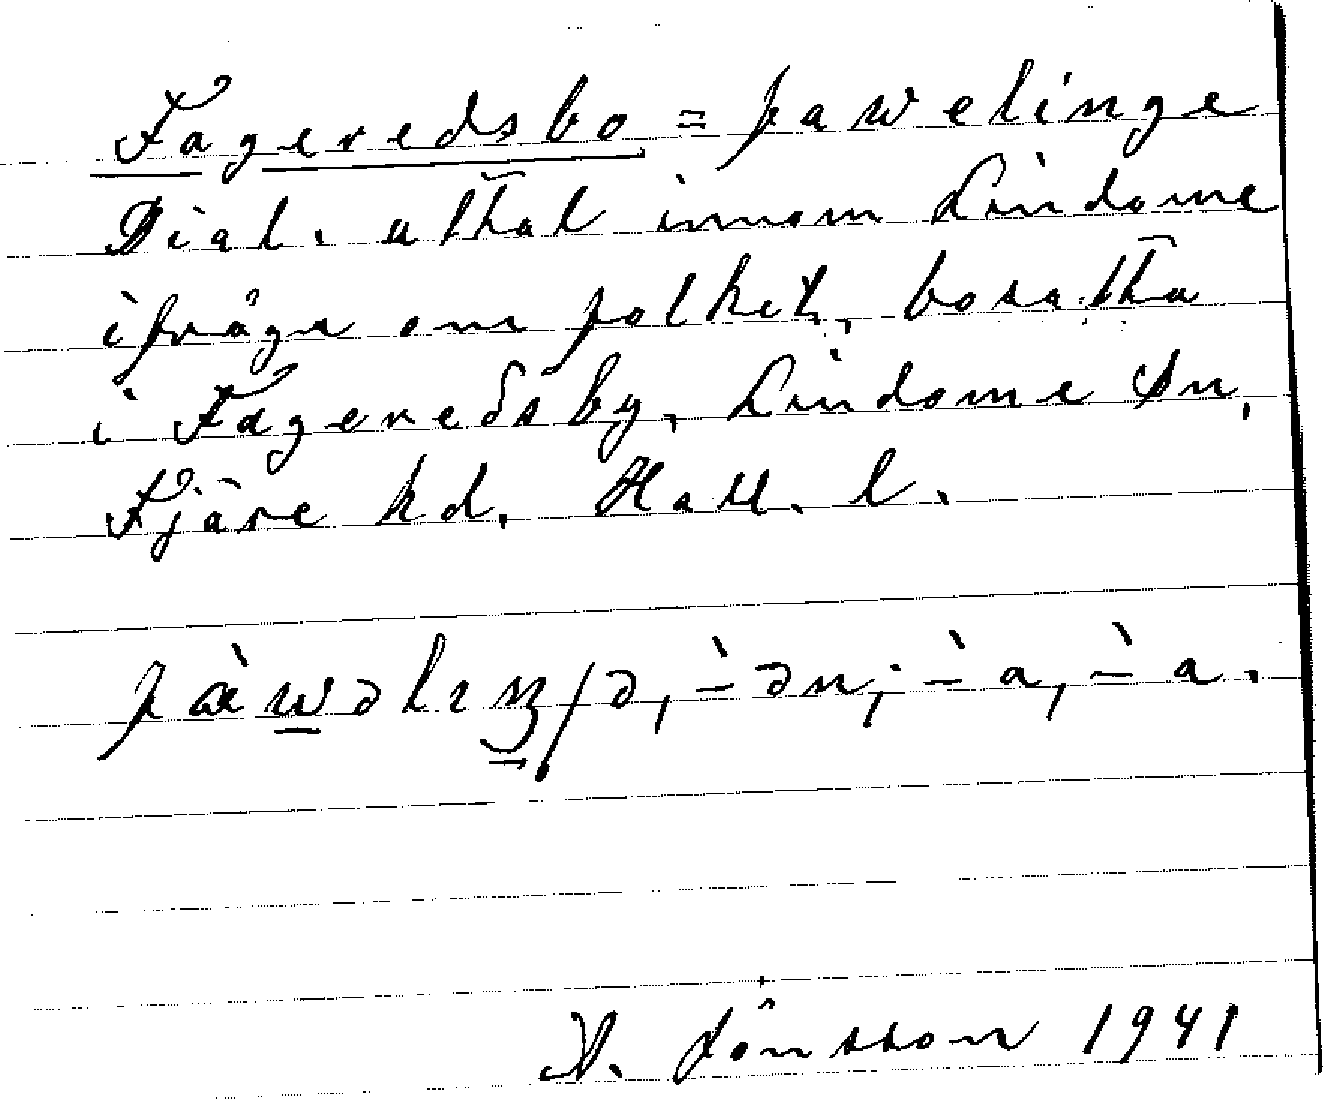 Fageredsbo = fawelinge
Dial. uttal innom Lindome
ifråga om folket, bosatta
i Fageredsby, Lindome Sn,
Fjäre hd. Hall. l.
Jönsson 1941